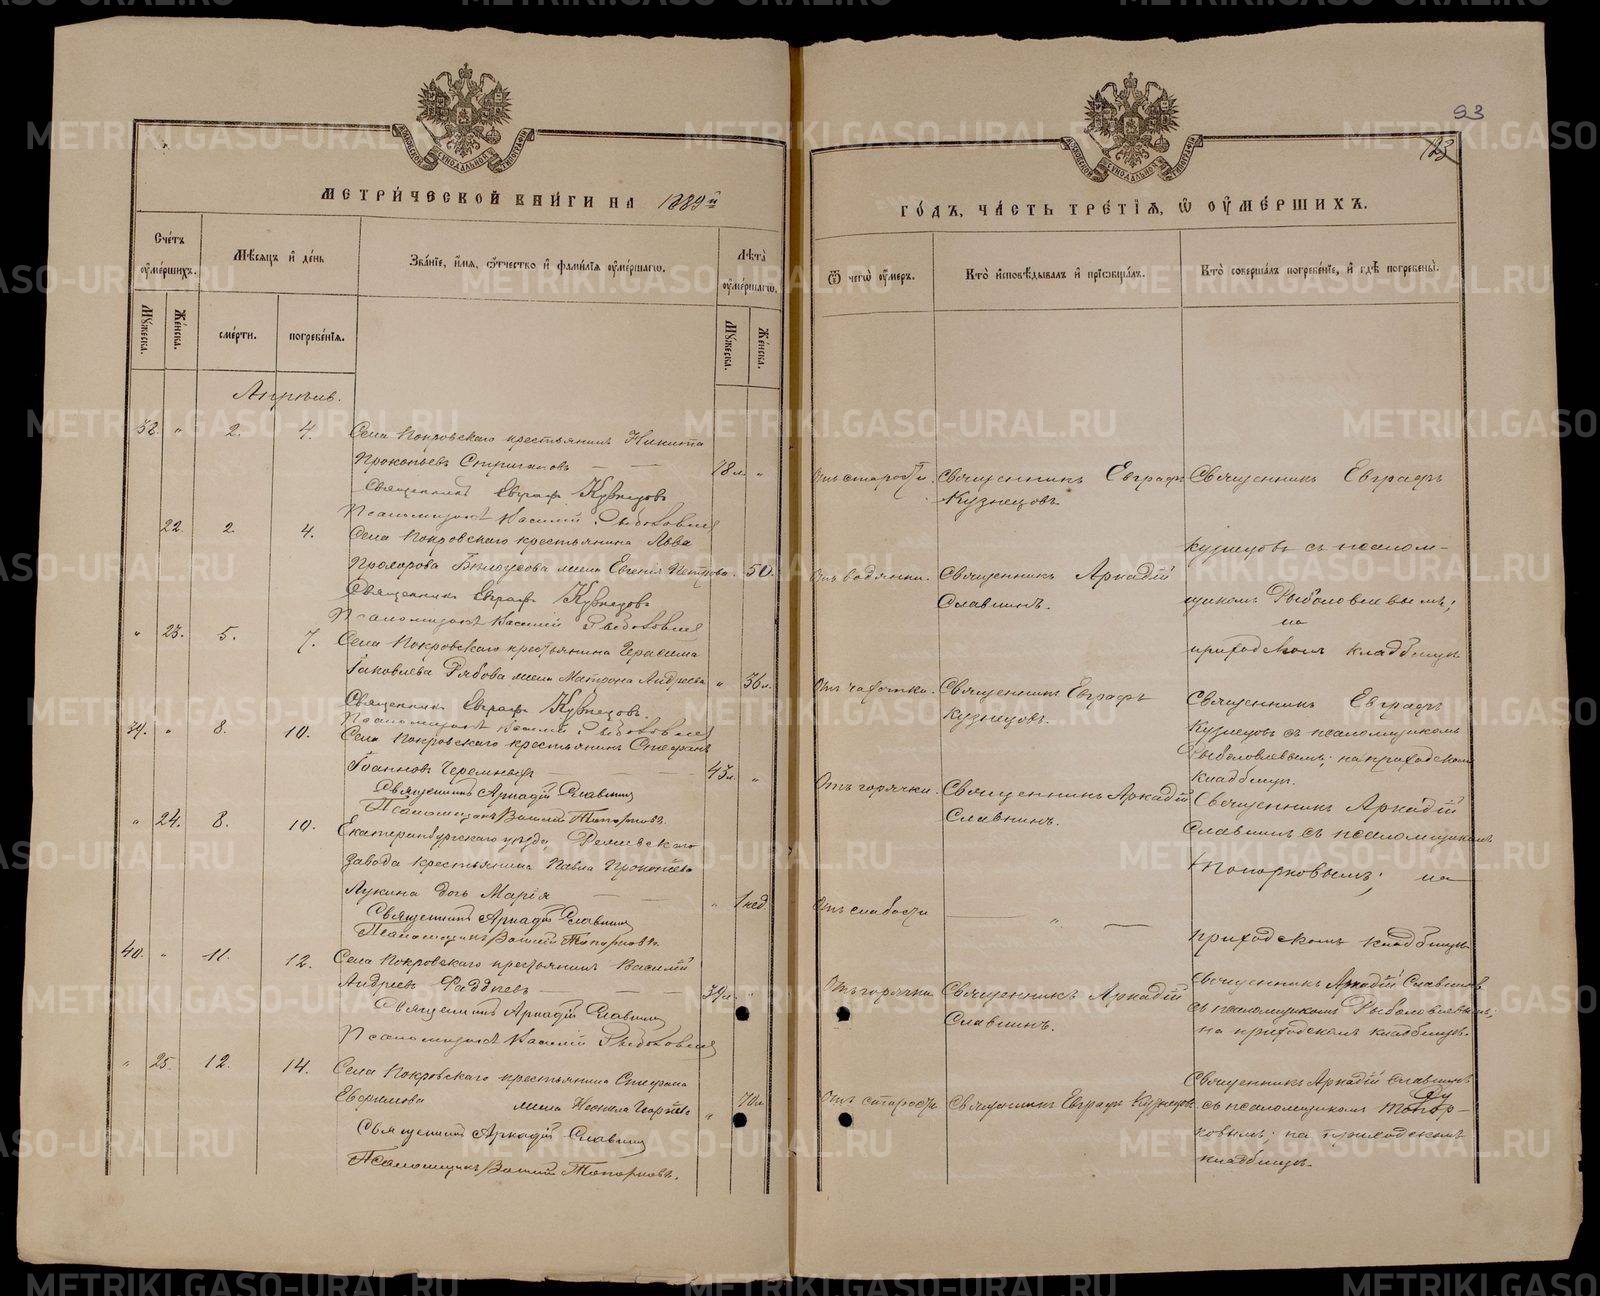 МЕТРИЧЕСКОЙ КНИГИ НА 1889й
Счетъ оумершихъ.
Мѣсяцъ и день
Званіе, имя, отчество и фамилія оумершагѡ.
Лѣта оумершагѡ.
Мужеска.
Женска.
смерти.
погребенія.
Мужеска.
Женска.
Апрѣль.
38. " 2. 4. Села Покровскаго крестьянинъ Никита
Прокопьевъ Стригановъ — — 78 л. "
Священникъ Евграфъ Кузнецовъ
Псаломщикъ Василій Рыболовлев
22 2. 4. Села Покровскаго крестьянина Льва
Прохорова Бѣлоусова жена Евгенія Петрова. 50.
Священникъ Евграфъ Кузнецовъ
Псаломщикъ Василій Рыболовлев
" 23. 5. 7. Села Покровскаго крестьянина Герасима
Іаковлева Рябова жена Матрона Андреева " 36 л.
Священникъ Евграфъ Кузнецовъ.
Псаломщикъ Василій Рыболовлев
39. " 8. 10. Села Покровскаго крестьянинъ Стефанъ
Іоанновъ Черемныхъ — — — 43 л. "
Священникъ Аркадій Славнинъ
Псаломщикъ Василій Топорковъ.
" 24. 8. 10. Екатеринбургскаго уѣзда, Режевскаго
завода крестьянина Павла Прокопьева
Лукина дочь Марія — — " 1 нед.
Священникъ Аркадій Славнинъ
Псаломщикъ Василій Топорковъ.
40. " 11. 12. Села Покровскаго крестьянинъ Василій
Андреевъ Фаддеевъ — — — 39 л. "
Священникъ Аркадій Славнинъ
Псаломщикъ Василій Рыболовлев
" 25. 12. 14. Села Покровскаго крестьянина Стефана
Евфимова жена " 70 л.
Священникъ Аркадій Славнинъ
Псаломщикъ Василій Топорковъ.
93
ГОДЪ, ЧАСТЬ ТРЕТІЯ, Ѡ ОУМЕРШИХЪ.
Ѿ чегѡ оумеръ.
Кто исповѣдывалъ и пріобщалъ.
Кто совершалъ погребеніе, и гдѣ погребены.
Отъ старости. Священникъ Евграфъ Священникъ Евграфъ
Кузнецовъ.
Кузнецовъ съ псалом-
Отъ водянки. Священникъ Аркадій
Славнинъ. щикомъ Рыболовлевымъ;
на
приходскомъ кладбищѣ
Отъ чахотки. Священникъ Евграфъ Священникъ Евграфъ
Кузнецовъ. Кузнецовъ съ псаломщикомъ
Рыболовлевымъ; на приходскомъ
кладбищѣ.
Отъ горячки. Священникъ Аркадій Священникъ Аркадій
Славнинъ. Славнинъ съ псаломщикомъ
Топорковымъ; на
Отъ слабости " —
приходскомъ кладбищѣ.
Отъ горячки Священникъ Аркадій Священникъ Аркадій Славнинъ
Славнинъ. съ псаломщикомъ Рыболовлевымъ;
на приходскомъ кладбищѣ.
Священникъ Аркадій Славнинъ
Отъ старости Священникъ Евграфъ Кузнецовъ съ псаломщикомъ Топор-
ковымъ; на приходскомъ
кладбищѣ.
METRIKI.GASO-URAL.RU